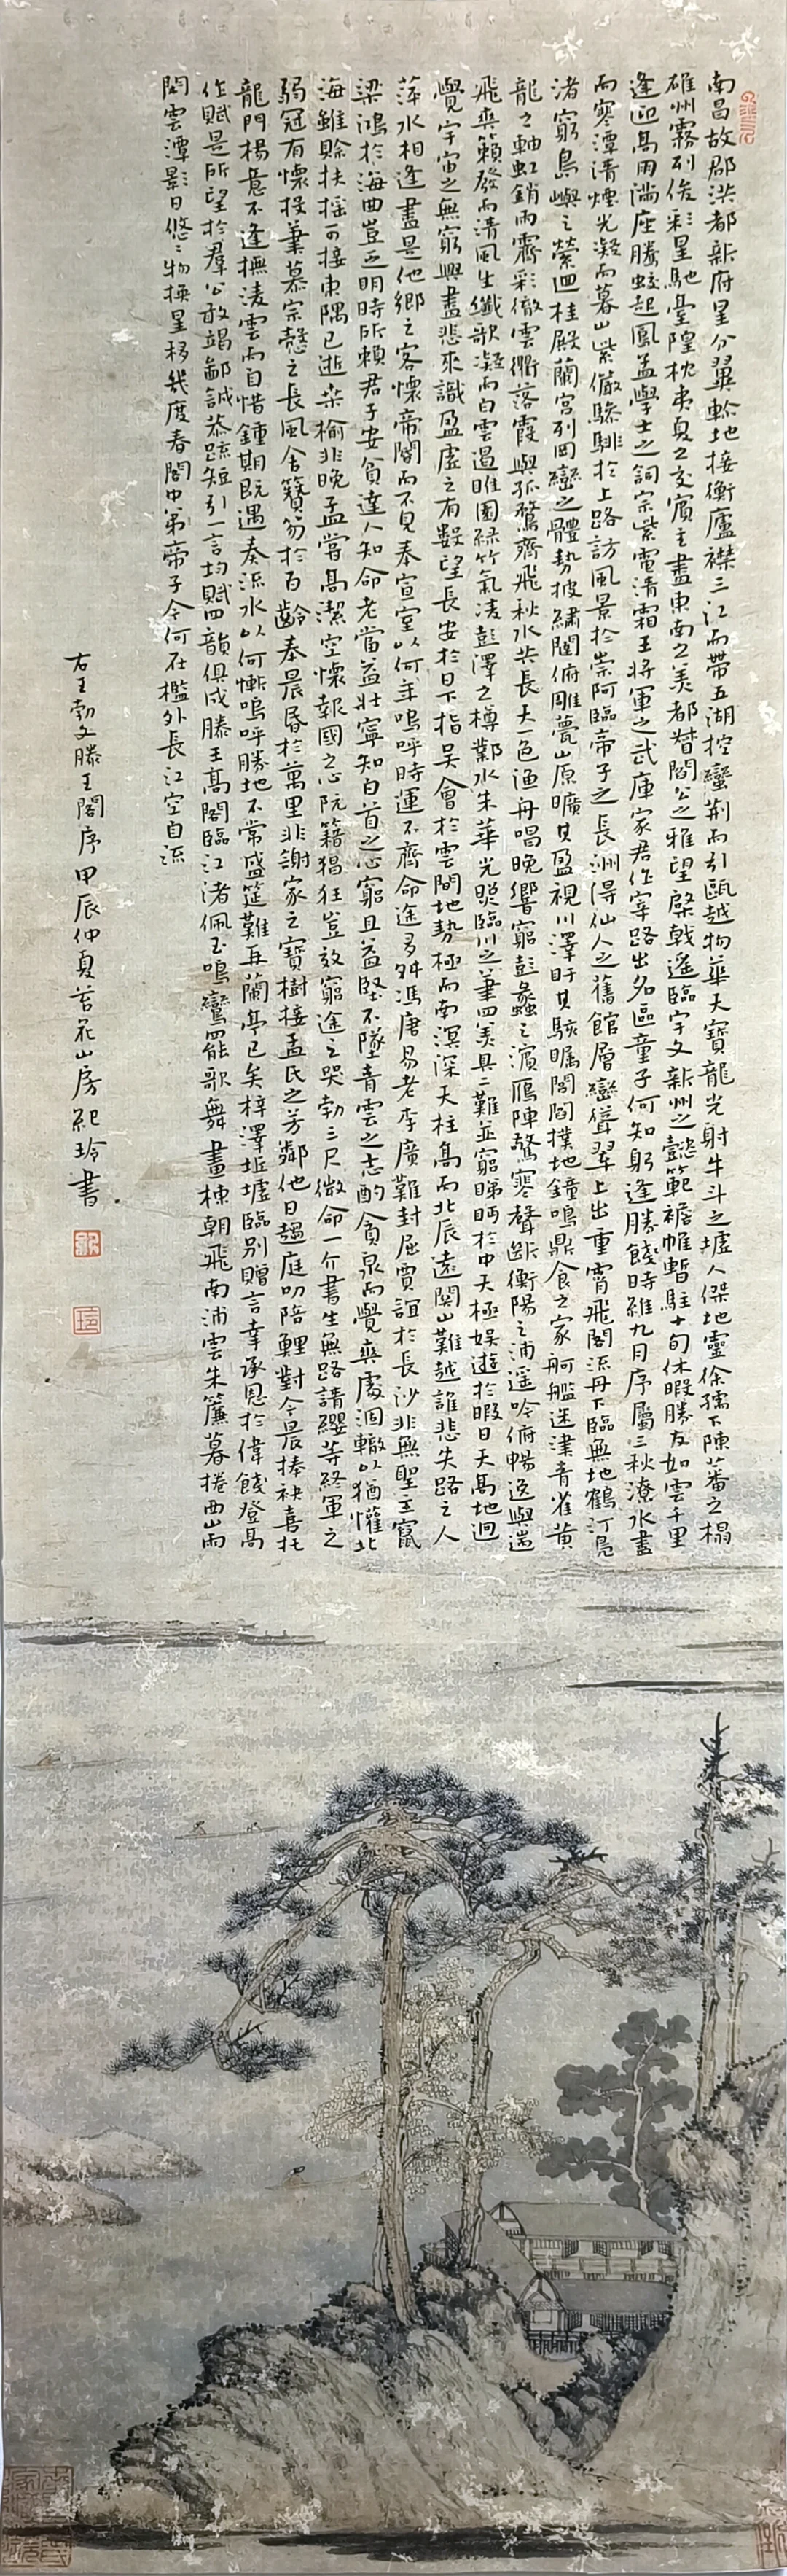 南昌故郡洪都新府星分翼軫地接衡廬襟三江而帶五湖控蠻荆而引甌越物華天寶龍光射牛斗之墟人傑地靈徐孺下陳蕃之榻
雄州霧列俊彩星馳臺隍枕夷夏之交賓主盡東南之美都督閻公之雅望棨戟遥臨宇文新州之懿範襜帷暫駐十旬休暇勝友如雲千里
逢迎高朋滿座騰蛟起鳳孟學士之詞宗紫電清霜王將軍之武庫家君作宰路出名區童子何知躬逢勝餞時維九月序屬三秋潦水盡
而寒潭清煙光凝而暮山紫儼驂騑於上路訪風景於崇阿臨帝子之長洲得仙人之舊館層巒聳翠上出重霄飛閣流丹下臨無地鶴汀鳧
渚窮島嶼之縈迴桂殿蘭宫列岡巒之體勢披繡闥俯雕甍山原曠其盈視川澤盱其駭矚閭閻撲地鐘鳴鼎食之家舸艦迷津青雀黄
龍之軸虹銷雨霽彩徹雲衢落霞與孤鶩齊飛秋水共長天一色漁舟唱晚響窮彭蠡之濱鴈陣驚寒聲斷衡陽之浦遥吟俯暢逸興遄
飛爽籟發而清風生纖歌凝而白雲遏睢園緑竹氣凌彭澤之樽鄴水朱華光照臨川之筆四美具二難並窮睇眄於中天極娱遊於暇日天高地迥
覺宇宙之無窮興盡悲來識盈虚之有數望長安於日下指吴會於雲間地勢極而南溟深天柱高而北辰遠関山難越誰悲失路之人
萍水相逢盡是他鄉之客懷帝閽而不見奉宣室以何年嗚呼時運不齊命途多舛馮唐易老李廣難封屈賈誼於長沙非無聖主竄
梁鴻於海曲豈乏明時所頼君子安貧達人知命老當益壯寧知白首之心窮且益堅不墜青雲之志酌貪泉而覺爽處涸轍以猶懽北
海雖賒扶摇可接東隅已逝桑榆非晚孟嘗高潔空懷報國之心阮籍猖狂豈效窮途之哭勃三尺微命一介書生無路請纓等終軍之
弱冠有懷投筆慕宗慤之長風舍簪笏於百齡奉晨昏於萬里非謝家之寶樹接孟氏之芳鄰他日趨庭叨陪鯉對今晨捧袂喜托
龍門楊意不逢撫凌雲而自惜鍾期既遇奏流水以何慚嗚呼勝地不常盛筵難再蘭亭已矣梓澤坵墟臨别贈言幸承恩於偉餞登高
作賦是所望於羣公敢竭鄙誠恭疏短引一言均賦四韻俱成滕王高閣臨江渚佩玉鳴鸞罷歌舞畫棟朝飛南浦雲朱簾暮捲西山雨
閒雲潭影日悠〻物换星移幾度春閣中弟帝子今何在檻外長江空自流
右王勃文滕王閣序甲辰仲夏苔花山房紀玲書
紀
玲